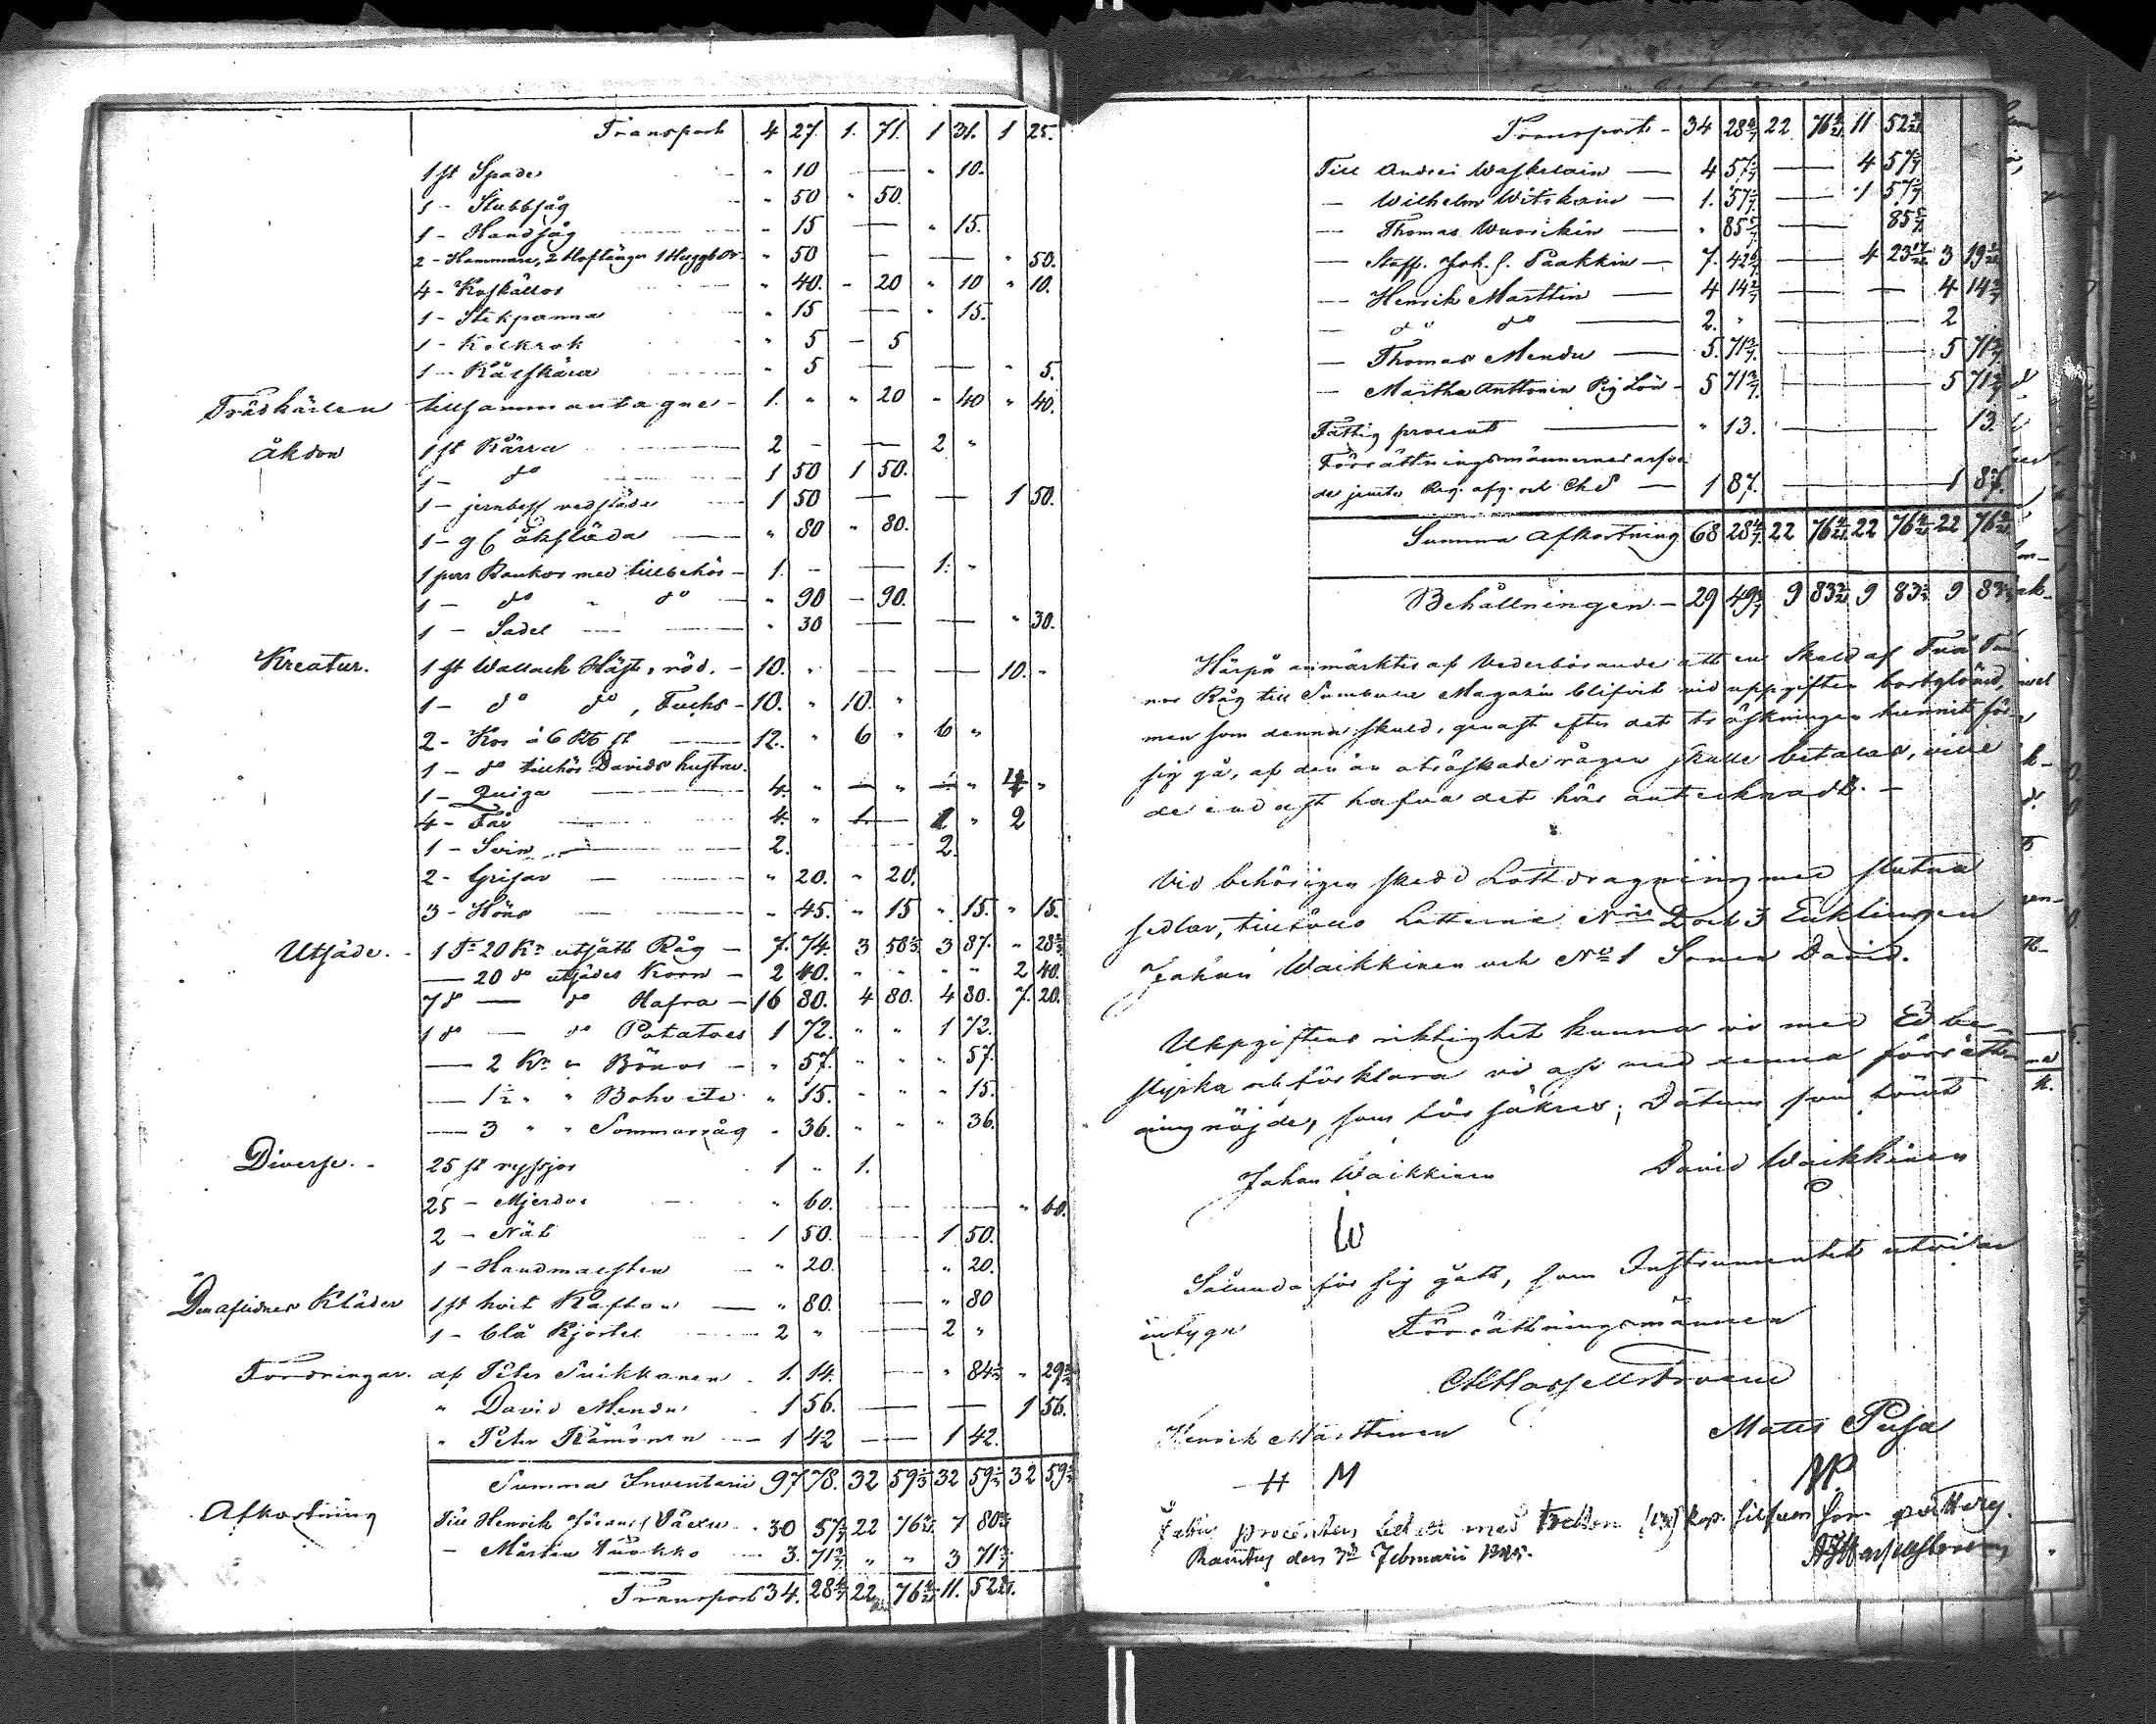 Transport 4 27. 1. 71. 1 31. 1 25.
1 st Spade " 10 — " 10.
1 - Stubbsåg " 50 " 50.
1 - Handsåg " 15 — " 15.
2 - Hammare, 2 Hoftänger 1 " 50 — — " 50.
4 - " 40. - 20 " 10 " 10.
1 - Stekpanna " 15 — " 15.
1 - Kolkrok " 5 - 5
1 - Kålskära " 5 — — " 5.
Trädkärlen tillsammantagne - 1. " " 20 " 40 " 40.
Åkdon 1 st Kärra 2 - — 2 "
1 - do 1 50 1 50.
1 - jernbesl vedsläde 1 50 — — 1 50.
1 - g f åksläda " 80 " 80.
1 par Rankor med tillbehör - 1. - — 1. "
1 - do " do " 90 - 90.
1 - Sadel " 30 — — " 30.
Kreatur. 1 st Wallack Häst, röd. - 10. " — — 10. "
1 - do do, Fuchs - 10. " 10. "
2 - Kor à 6 Rb st 12. " 6 " 6 "
1 - do tillhör Davids hustru.
1 - Quiga 4. " — " — "
4 - Får 4. " 2
1 - Svin 2. 2.
2 - Grisar — " 20. " 20.
3 - Höns " 45. " 15 " 15. " 15.
Utsäde. 1 Tna 20 Kr utsådt Råg - 7. 74. 3 58 1/3 3 87. " 28 2/3
— 20 do utsådes Korn - 2 40. " " " " 2 40.
7 do — do Hafra - 16 80. 4 80. 4 80. 7. 20.
1 do — do Potatoes 1 72. " " 1 72.
— 2 Kr " Bönor - " 57. " " " 57.
— 1 1/2 " " Bohvete " 15. " " " 15.
— 3 " " Sommarråg " 36. " " " 36.
Diverse. 25 st ryssjor 1 " 1.
25 - Mjerdor " 60. — — " 60.
2 - Nät 1 50. 1 50.
1 - Handmalsten " 20. " 20.
Den aflidnes Kläder 1 st hvit Kaftan — " 80. — " 80
1 - blå Kjortel 2 " — 2 "
Fordringar. af Peter Suikkanen 1. 14. " 84 1/3 " 29 2/3
" David Mendu 1 56. — — 1 56.
" Peter Rämönen 1 42 — 1 42.
Summa Inventarii 97 78. 32 59 1/3 32 59 1/3 32 59 1/3
Afkortning Till Henrik 30 57 1/7 22 76 4/21 7 80
- Mårten 3. 71 3/7 " " 3 71 3/7
Transport 34. 28 4/7 22 76 4/21 11. 52
Transport - 34 28 4/7 22 76 4/21 11 52
Till Andrei — 4 57 1/7 — 4 57 1/7
- Wilhelm — 1. 57 1/7 — 1 57 1/7
- Thomas — " 85 5/7 — 85 5/7
- Staff. Joh. S. Paakkin — 7. 42 6/7 — 4 23 17/21 3 19 1/21
- Henrik Marttin — 4 14 2/7 — — 4 14 2/7
- do do — 2. " — 2
- Thomas Mendu — 5. 71 3/7 — 5 71 3/7
- Martha Anttonen Pig Lön - 5 71 3/7 — 5 71 3/7
Fattig procent — " 13. — 13.
Förrättningsmännernes arfvo
de jemte Reg. afg. och — 1 87. — 1 87.
Summa Afkortning 68 28 4/7 22 76 4/21 22 76 4/21 22 76 4/21
Behållningen - 29 49 3/7 9 83 1/7 9 83 1/7 9 83 1/7
Härpå anmärktes af Vederbörande att en skuld af Två Tun
nor Råg till Sumbula Magazin blifvit vid uppgiften bortglömd,
men som denna skuld, genast efter det tröskningen hunnit för
sig gå, af den än otröskade rågen skulle betalas, ville
de endast hafva det här antecknadt. -
Vid behörigen skedd Lottdragning med slutna
sedlar, tillföllo Lotterne Nris 2 och 3 Enklingen
Johan Waikkinen och No 1 Sonen David.
Uppgiftens riktighet kunna vi med Ed be-
styrka och förklara vi oss med denna förrättn
ing nöjde, som försäkres; Datum som förut
Johan Waikkinen David Waikkinen
W
Sålunda för sig gått, som Instrumentet utvisar
intyga Förrättningsmännen
Henrik Marttinen Matts Pusa
H M MP
procenten betalt med tretton (13) kop. silfver som qvitteras.
Rantus den 3 Februarii